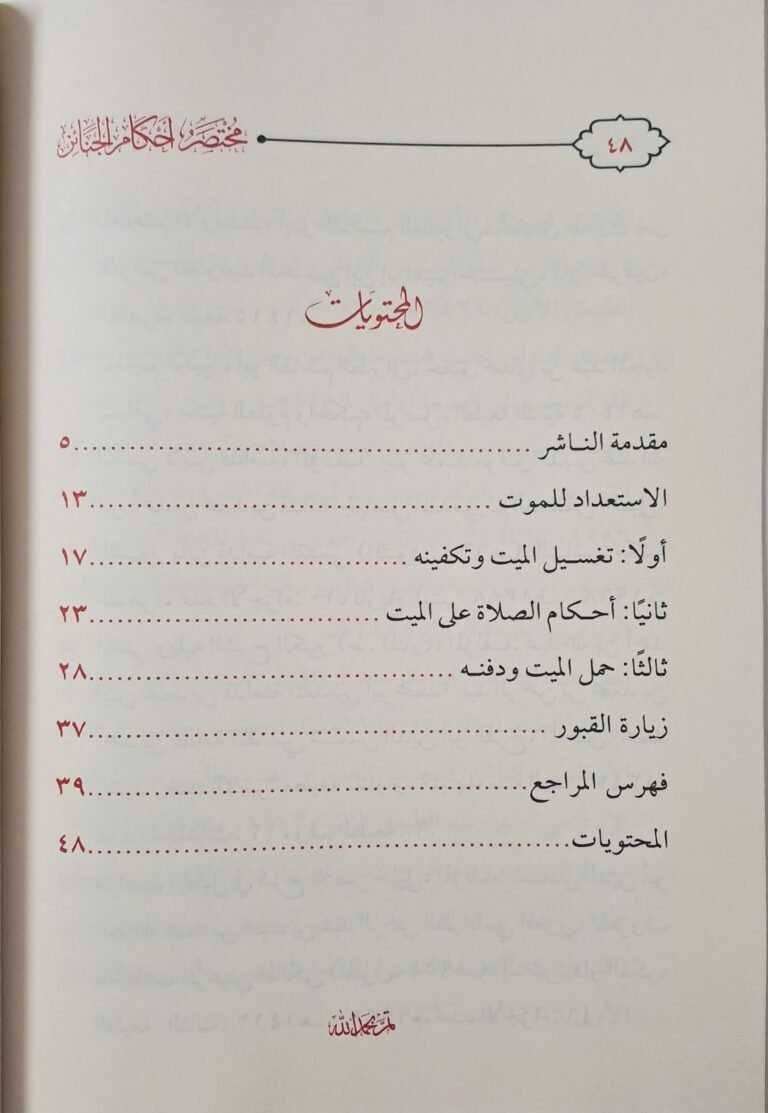 ٤٨
مُخْتَصَرُ أَحْكَامِ الجَنَائِزِ
المحتويات
مقدمة الناشر ................................................ ٥
الاستعداد للموت ................................................ ١٣
أولًا: تغسيل الميت وتكفينه ................................................ ١٧
ثانيًا: أحكام الصلاة على الميت ................................................ ٢٣
ثالثًا: حمل الميت ودفنه ................................................ ٢٨
زيارة القبور ................................................ ٣٧
فهرس المراجع ................................................ ٣٩
المحتويات ................................................ ٤٨
تم بحمد الله